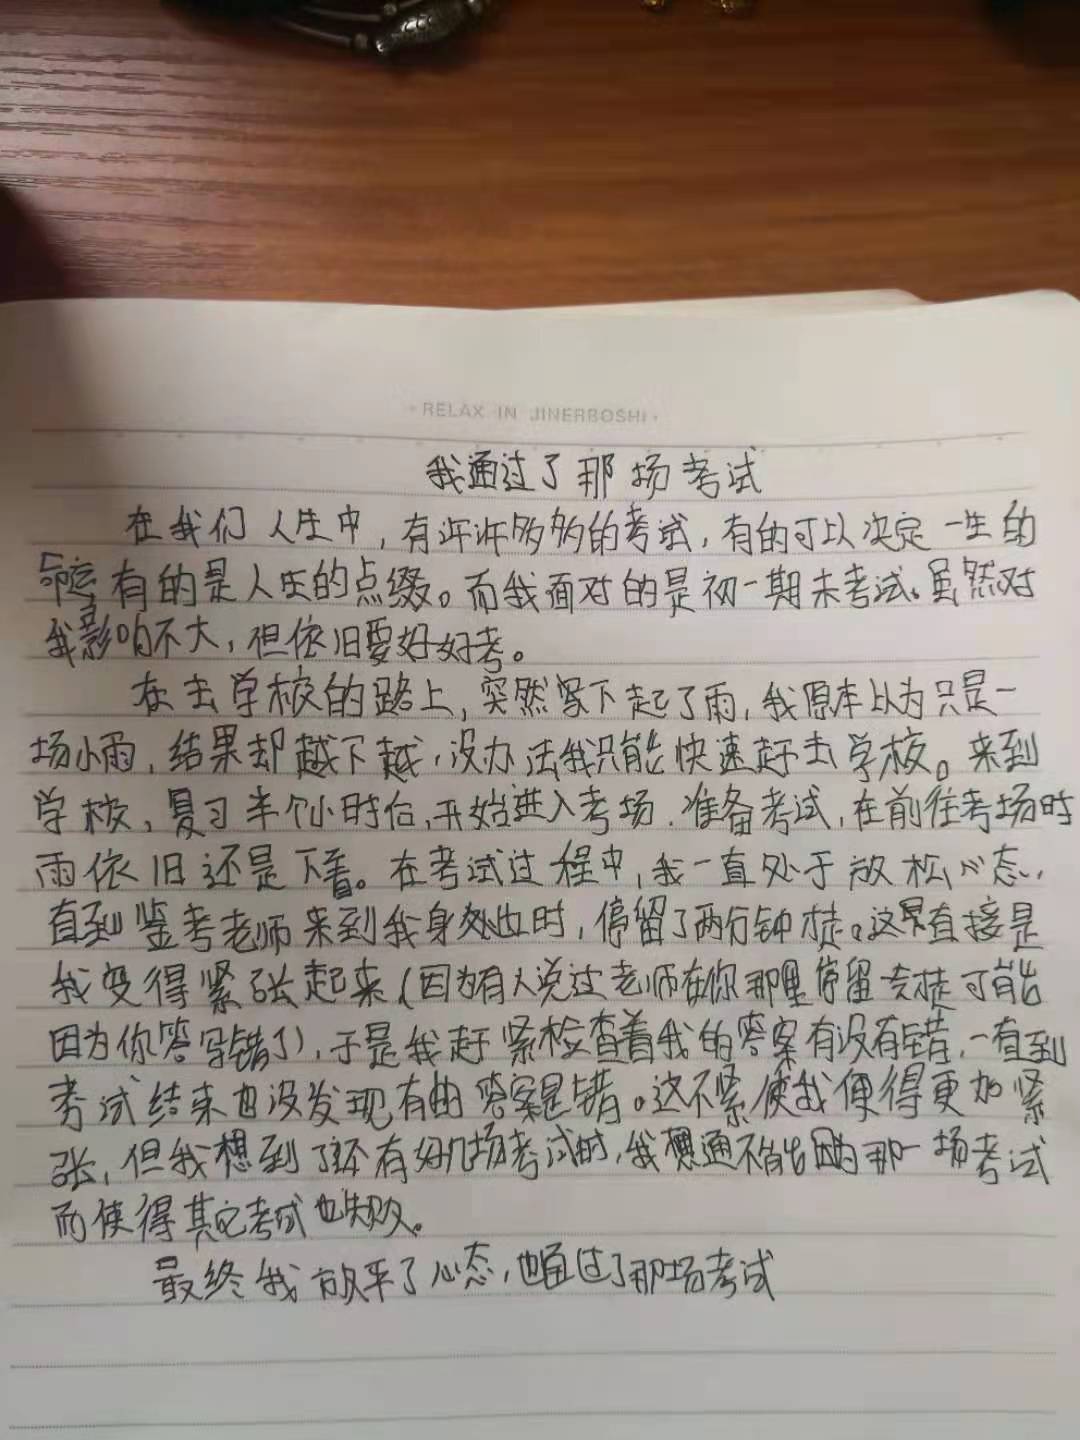 · RELAX IN JINERBOSHI ·
我通过了那场考试
在我们人生中,有许许多多的考试,有的可以决定一生的
命运有的是人生的点缀。而我面对的是初一期末考试。虽然对
我影响不大,但依旧要好好考。
在去学校的路上,突然下起了雨,我原本以为只是一
场小雨,结果却越下越,没办法我只能快速赶去学校。来到
学校,复习半个小时后,开始进入考场.准备考试,在前往考场时
雨依旧还是下着。在考试过程中,我一直处于放松心态,
直到鉴考老师来到我身处时,停留了两分钟。这直接是
我变得紧张起来(因为有人说过老师在你那里停留可能
因为你答写错了),于是我赶紧检查着我的答案有没有错,一直到
考试结束也没发现有答案是错。这不紧使我便得更加紧
张,但我想到了还有好几场考试时,我想通不能因为那一场考试
而使得其它考试也失败。
最终我放平了心态,也通过了那场考试